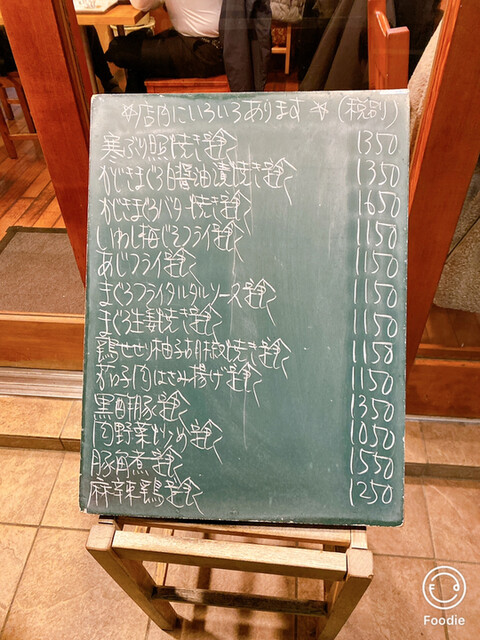 ☆店内にいろいろあります☆(税別)
寒ぶり照り焼き定食 1350
かじきまぐろ白醤油漬け焼き定食 1350
かじきまぐろバター焼き定食 1650
いわし梅じそフライ定食 1150
あじフライ定食 1150
まぐろフライタルタルソース定食 1150
まぐろ生姜焼き定食 1150
鶏せせり柚子胡椒焼き定食 1150
茄子肉はさみ揚げ定食 1150
黒酢豚定食 1350
肉野菜炒め定食 1050
豚角煮定食 1550
麻辛鶏定食 1250
Foodie